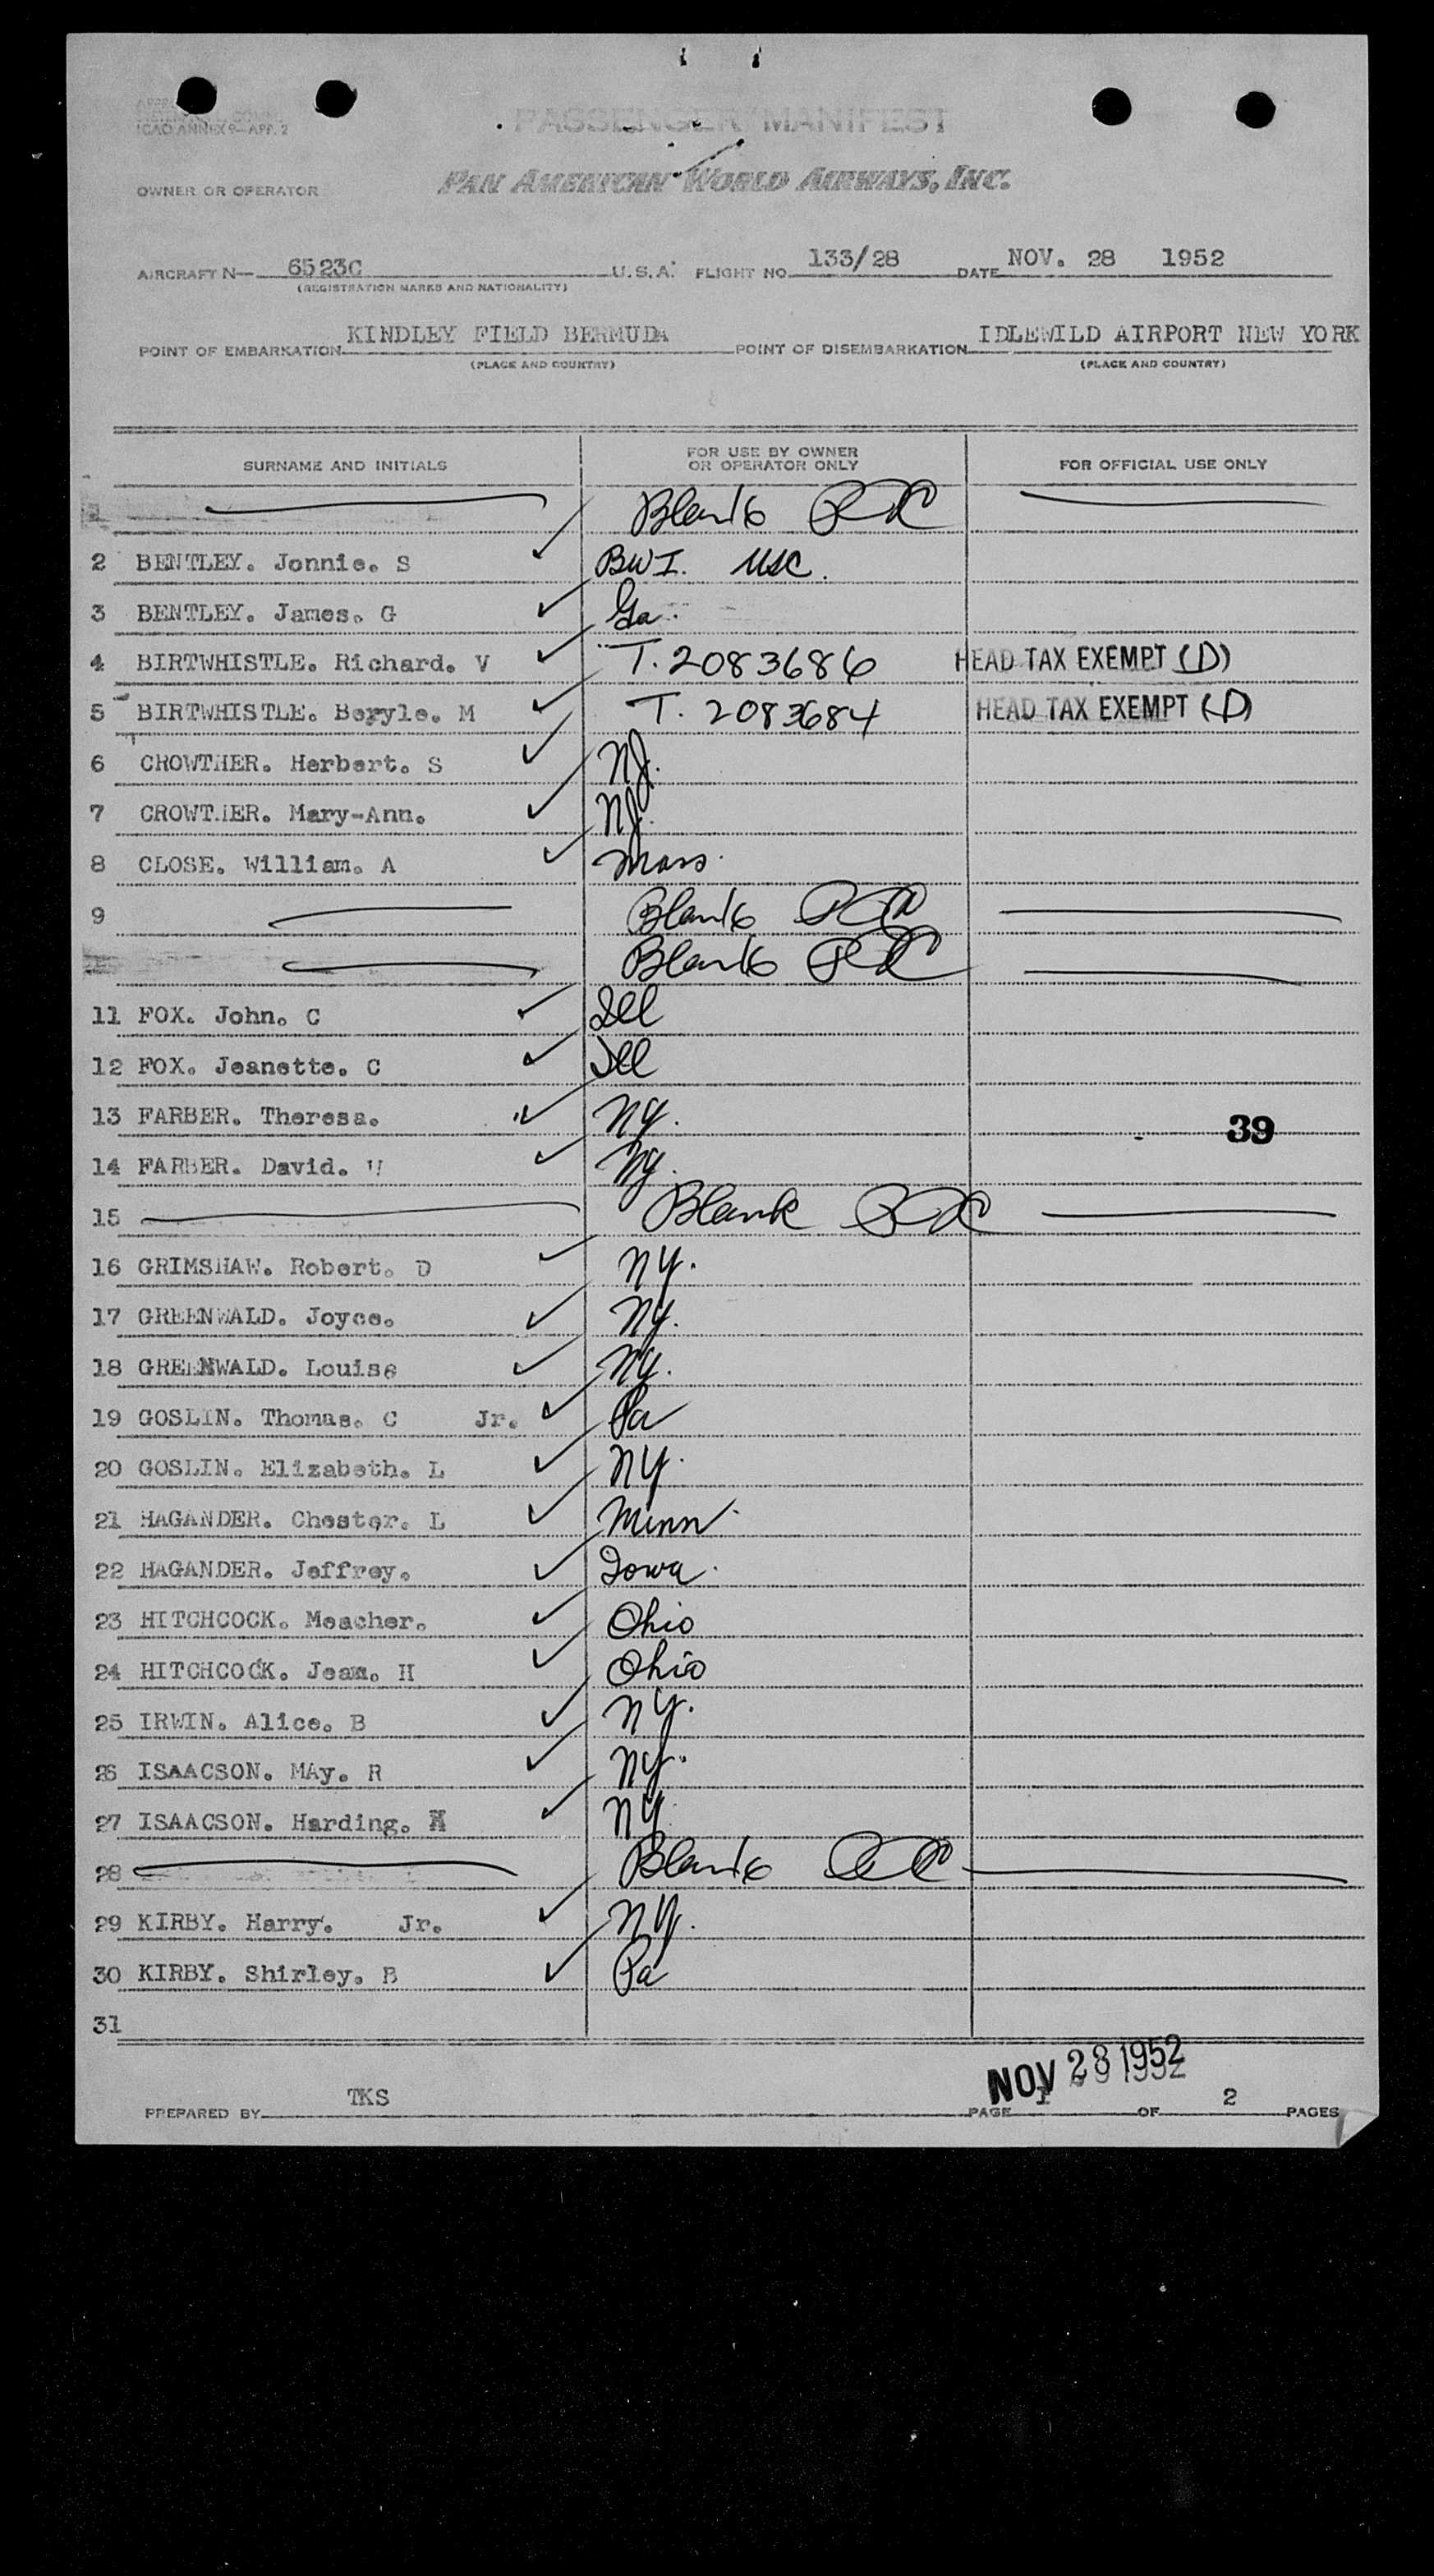 ICAO ANNEX 9—APP. 2
PASSENGER MANIFEST
OWNER OR OPERATOR PAN AMERICAN WORLD AIRWAYS, INC.
AIRCRAFT N— 6523C U.S.A. FLIGHT NO. 133/28 DATE NOV. 28 1952
(REGISTRATION MARKS AND NATIONALITY)
POINT OF EMBARKATION KINDLEY FIELD BERMUDA POINT OF DISEMBARKATION IDLEWILD AIRPORT NEW YORK
(PLACE AND COUNTRY) (PLACE AND COUNTRY)
SURNAME AND INITIALS FOR USE BY OWNER OR OPERATOR ONLY FOR OFFICIAL USE ONLY
1 Blank
2 BENTLEY. Jonnie. S BWI. USC.
3 BENTLEY. James. G Ga.
4 BIRTWHISTLE. Richard. V T. 2083686 HEAD TAX EXEMPT (D)
5 BIRTWHISTLE. Beryle. M T. 2083684 HEAD TAX EXEMPT (D)
6 CROWTHER. Herbert. S NJ.
7 CROWTHER. Mary-Ann. NJ.
8 CLOSE. William. A Mass.
9 Blank
Blank
11 FOX. John. C Ill
12 FOX. Jeanette. C Ill
13 FARBER. Theresa. NY.
39
14 FARBER. David. NY.
15 Blank
16 GRIMSHAW. Robert. D NY.
17 GREENWALD. Joyce. NY.
18 GREENWALD. Louise NY.
19 GOSLIN. Thomas. C Jr. Pa
20 GOSLIN. Elizabeth. L NY.
21 HAGANDER. Chester. L Minn.
22 HAGANDER. Jeffrey. Iowa.
23 HITCHCOCK. Meacher. Ohio
24 HITCHCOCK. Jean. H Ohio
25 IRWIN. Alice. B NY.
26 ISAACSON. MAy. R NY.
27 ISAACSON. Harding. NY
28 Blank
29 KIRBY. Harry. Jr. NY.
30 KIRBY. Shirley. B Pa
31
NOV 28 1952
PREPARED BY TKS PAGE 1 OF 2 PAGES